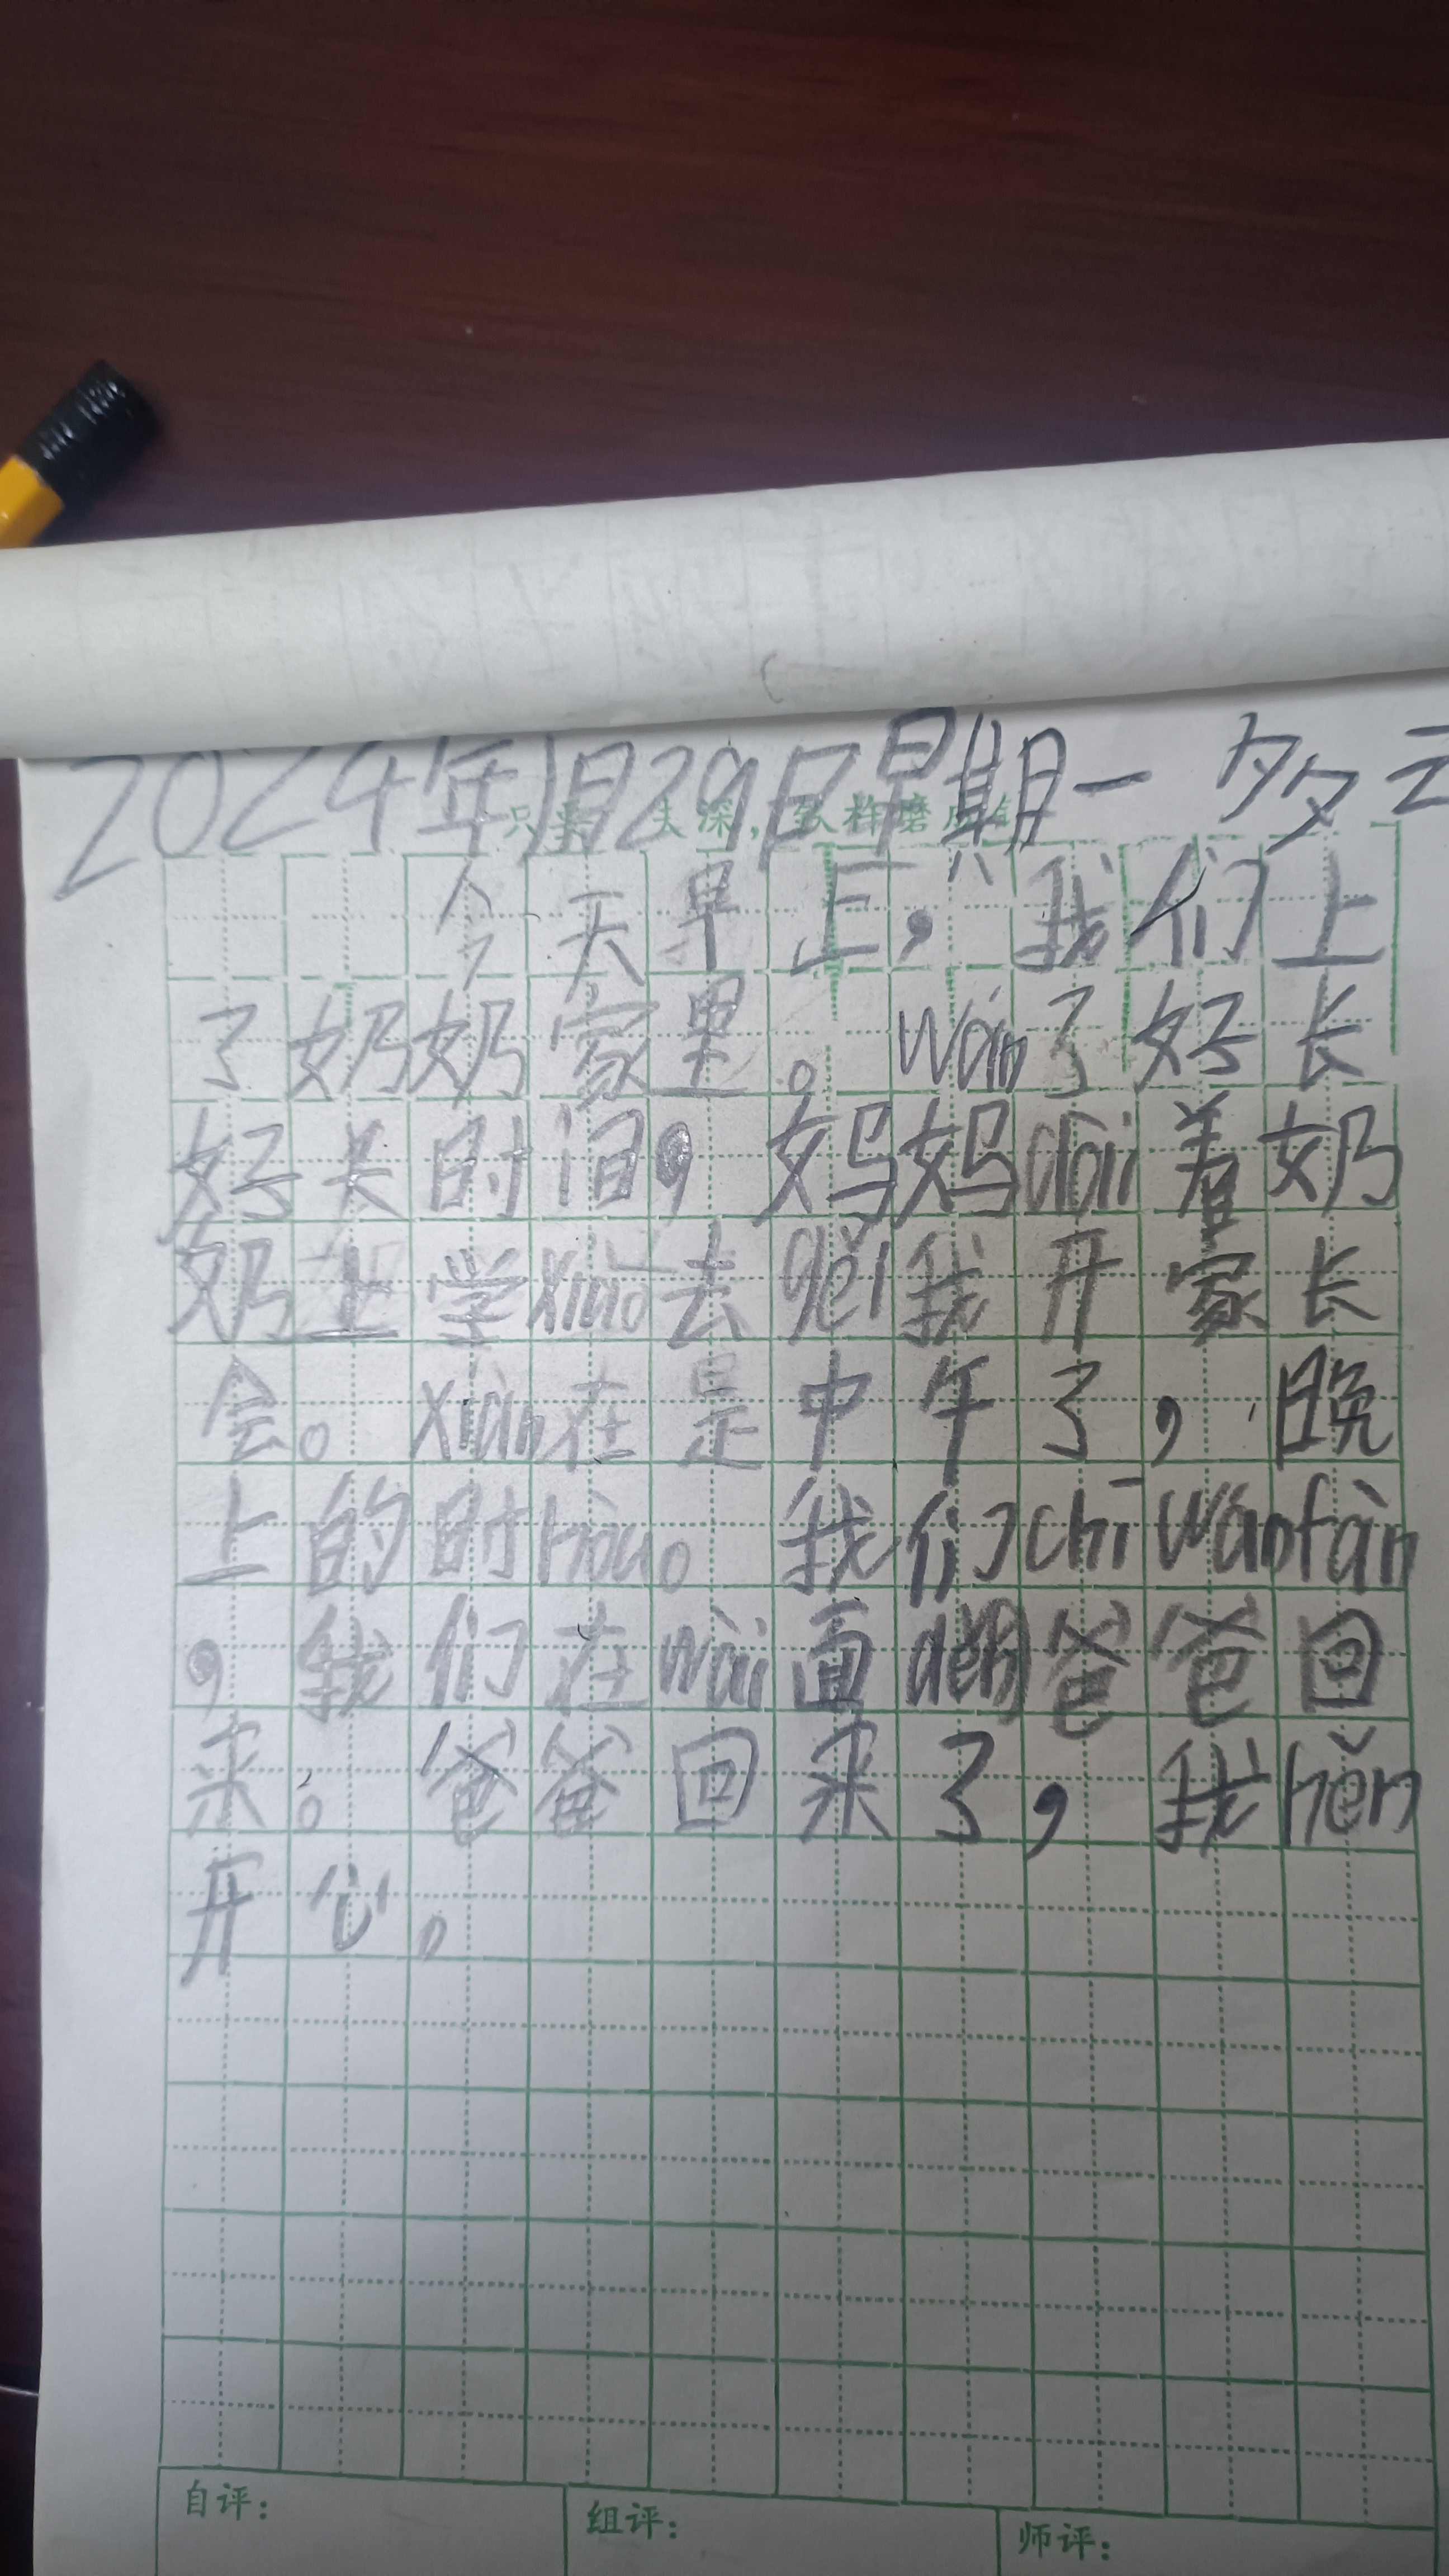 2024年1月29日星期一 多云
只要 夫深,铁杵磨成
今天早上,我们上
了奶奶家里。wán了好长
好长时间,妈妈dài着奶
奶上学xiào去gěi我开家长
会。xiàn在是中午了,晚
上的时hòu。我们chī wǎnfàn
,我们在wài面děng爸爸回
来。爸爸回来了,我hěn
开心。
自评: 组评: 师评: